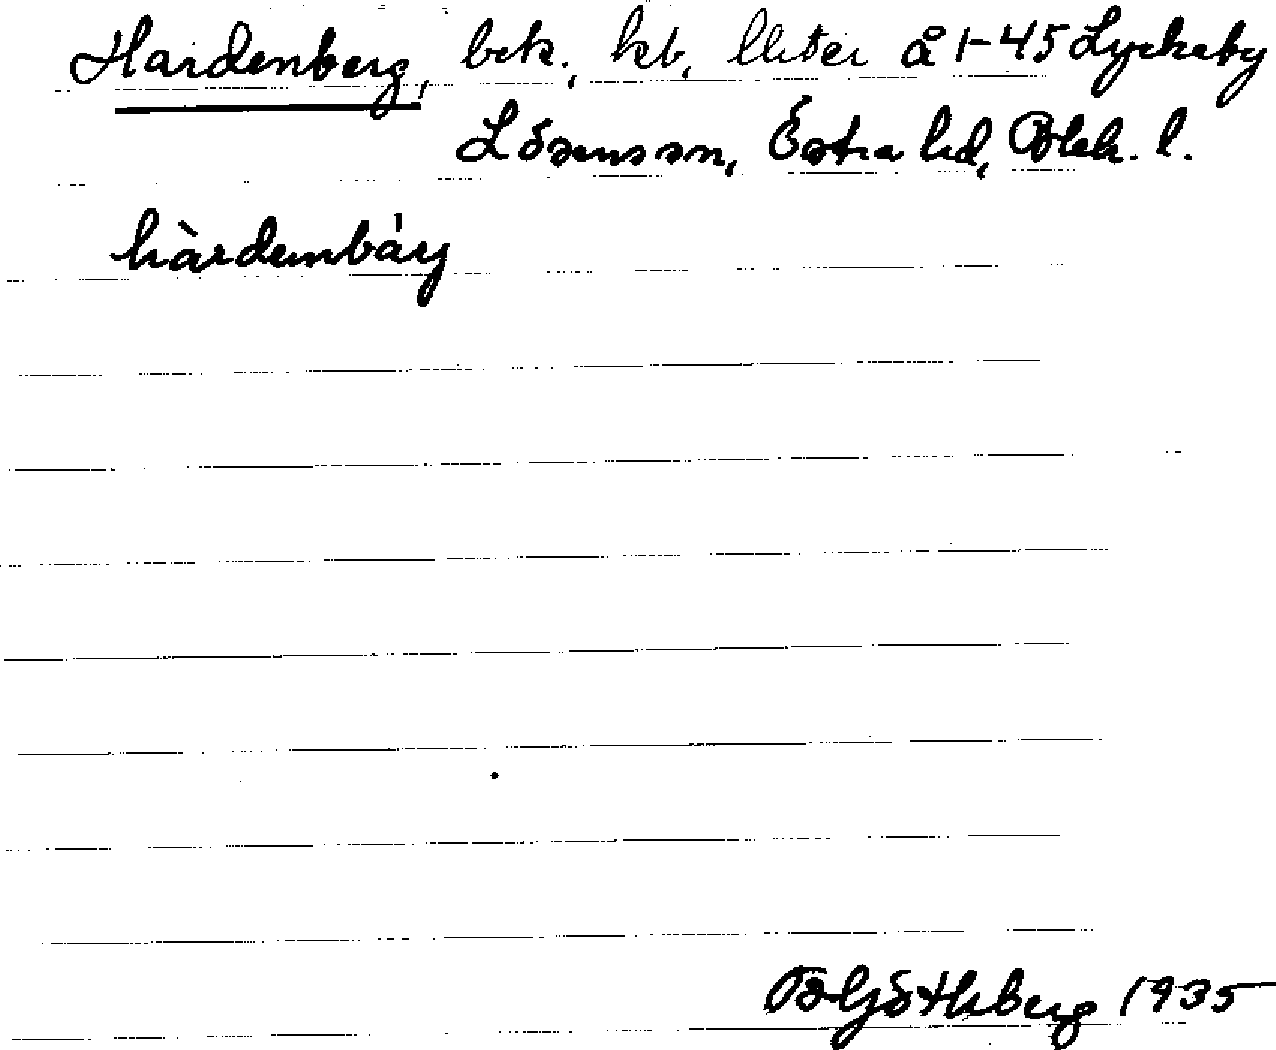 Hardenberg, bek., kb, lliter å 1-45 Lyckeby
Lösens sn, Östra hd, Blek. l.
hàrdembárj
B Götlsberg 1935